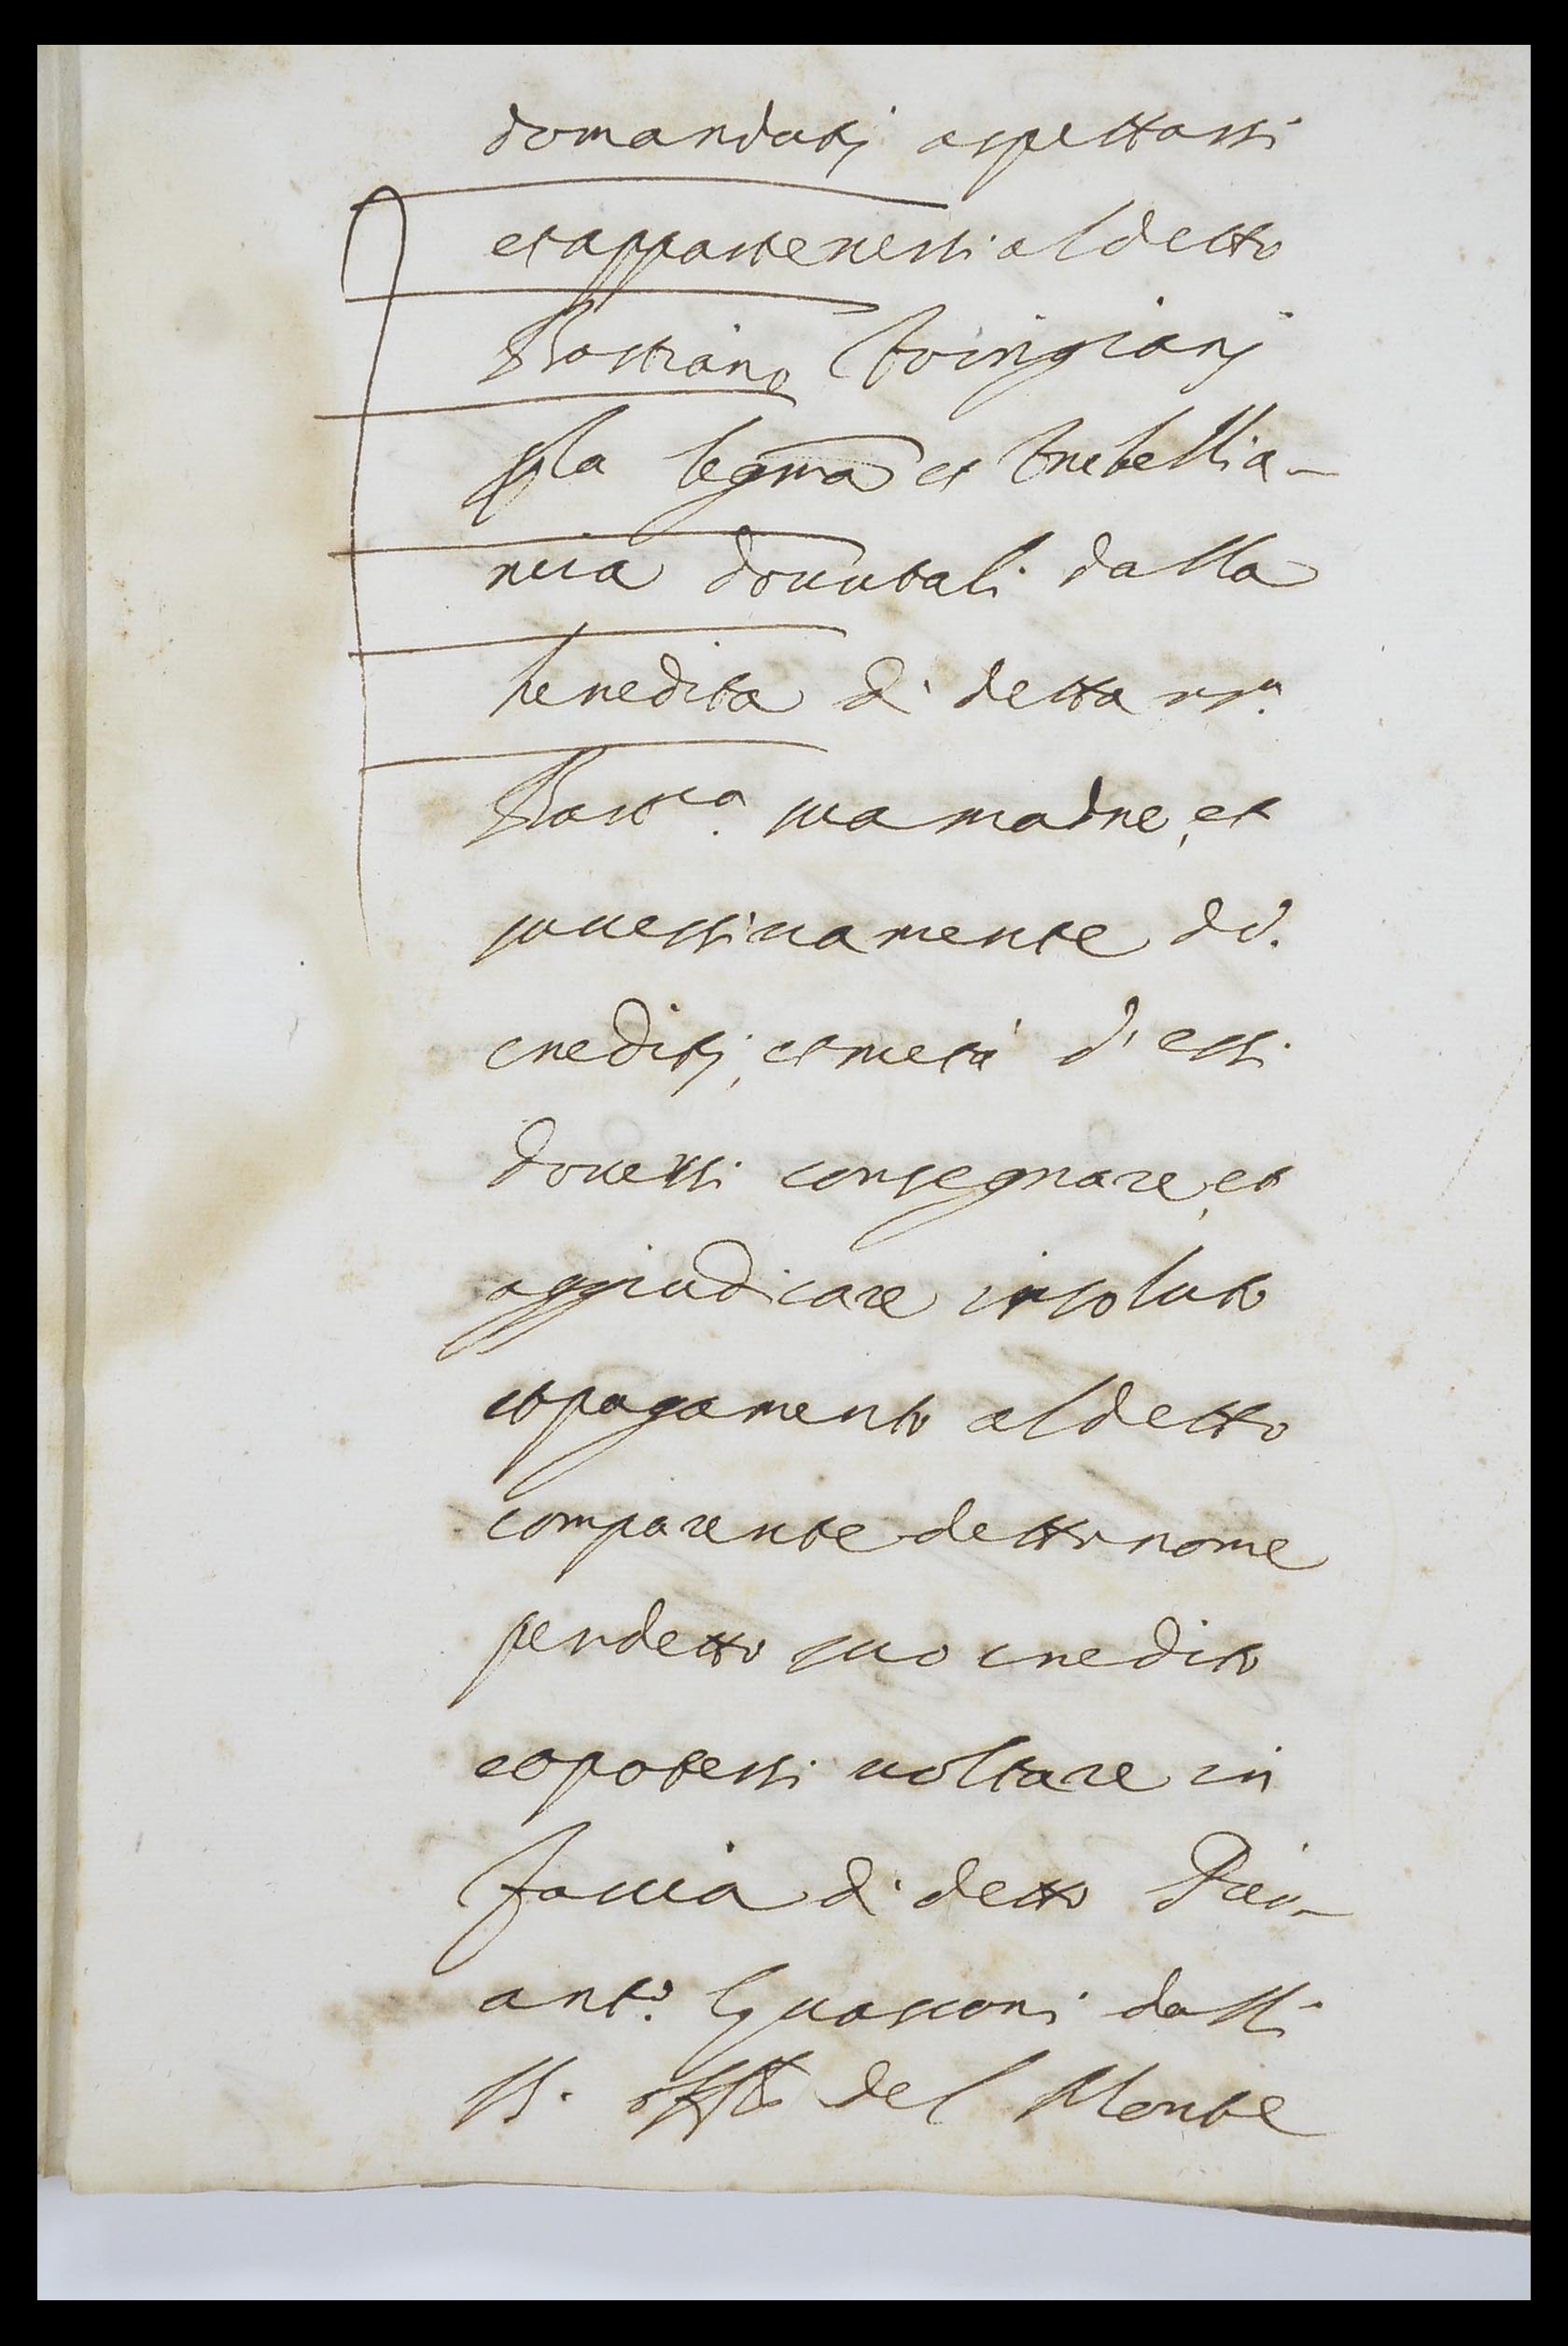 domandati aspettassi
et appartenessi al detto
Bastiano Foingiani
p la legma et trebellia-
nica douutali dalla
heredita di detta mᵃ.
Bastᶜᵃ. sua madre, et
successiuamente dd.
crediti, et metà d'essi
douessi consegnare, et
aggiudicare insoluto
et pagamento al detto
comparente detto nome
per detto suo credito
et potessi uoltare in
faccia di detto Pier-
antᵒ. Guasconi dalli
SS. offˡⁱ del Monte